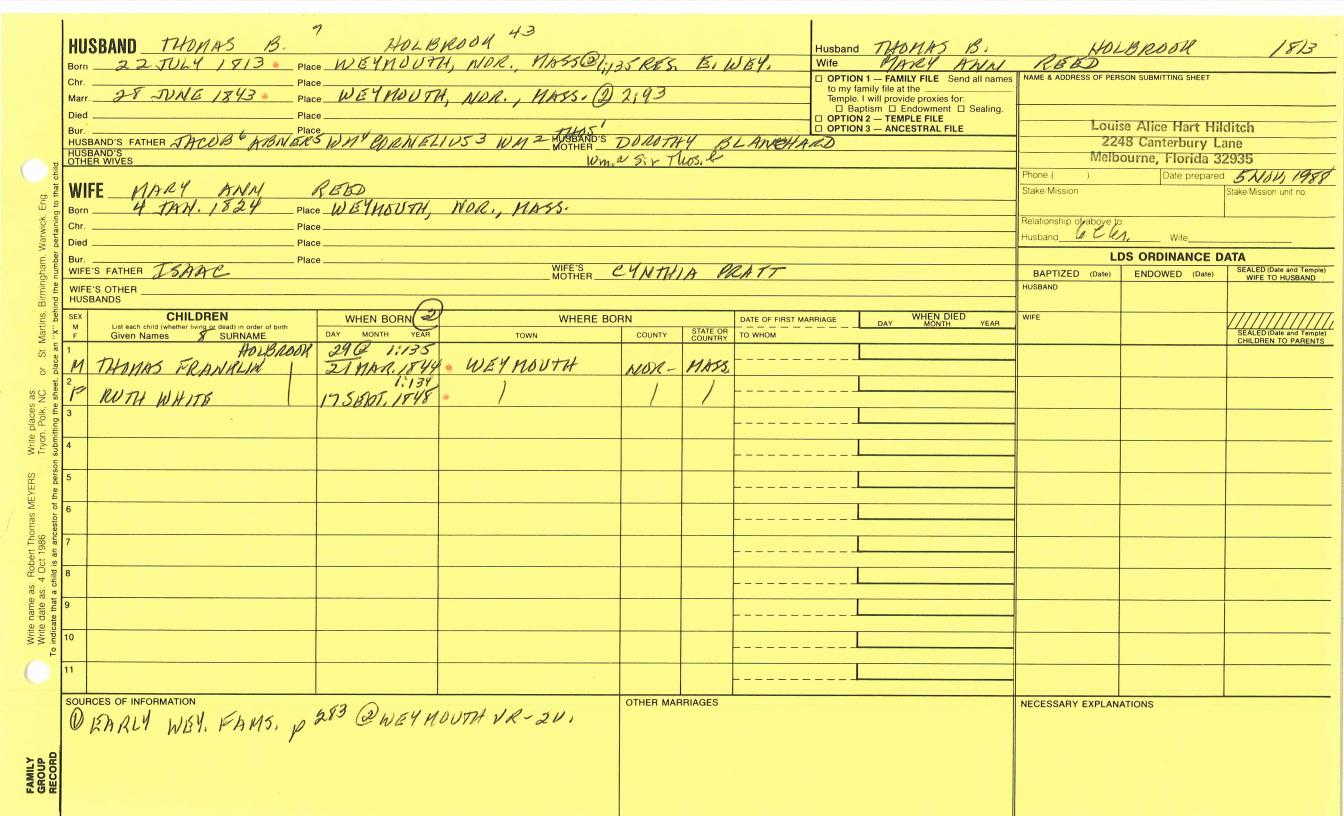 HUSBAND THOMAS B. 7 HOLBROOK 43
Born 22 JULY 1813 Place WEYMOUTH, NOR., MASS ② 1:135 RES. E. WEY.
Chr. Place
Marr. 28 JUNE 1843 Place WEYMOUTH, NOR., MASS. ② 2:93
Died Place
Bur. Place
HUSBAND'S FATHER JACOB 6 ABNER 5 WM 4 CORNELIUS 3 WM 2 THOS 1 HUSBAND'S MOTHER DOROTHY BLANCHARD
HUSBAND'S OTHER WIVES Wm. a Sir Thos. b
WIFE MARY ANN REED
Born 4 JAN. 1824 Place WEYMOUTH, NOR., MASS.
Chr. Place
Died Place
Bur. Place
WIFE'S FATHER ISAAC WIFE'S MOTHER CYNTHIA PRATT
WIFE'S OTHER HUSBANDS
Husband THOMAS B. HOLBROOK 1813
Wife MARY ANN REED
☐ OPTION 1 — FAMILY FILE Send all names
to my family file at the
Temple. I will provide proxies for:
☐ Baptism ☐ Endowment ☐ Sealing.
☐ OPTION 2 — TEMPLE FILE
☐ OPTION 3 — ANCESTRAL FILE
NAME & ADDRESS OF PERSON SUBMITTING SHEET
Louise Alice Hart Hilditch
2248 Canterbury Lane
Melbourne, Florida 32935
Phone ( ) Date prepared 5 NOV, 1988
Stake Mission Stake Mission unit no.
Relationship of above to:
Husband 6 C 6 r. Wife
LDS ORDINANCE DATA
BAPTIZED (Date) ENDOWED (Date) SEALED (Date and Temple) WIFE TO HUSBAND
HUSBAND
WIFE
SEALED (Date and Temple) CHILDREN TO PARENTS
SEX M F CHILDREN WHEN BORN ② WHERE BORN DATE OF FIRST MARRIAGE WHEN DIED
List each child (whether living or dead) in order of birth
Given Names 8 SURNAME DAY MONTH YEAR TOWN COUNTY STATE OR COUNTRY TO WHOM DAY MONTH YEAR
1 HOLBROOK 29 @ 1:135
M THOMAS FRANKLIN 21 MAR. 1844 WEYMOUTH NOR- MASS
2 1:134
F RUTH WHITE 17 SEPT. 1848
3
4
5
6
7
8
9
10
11
SOURCES OF INFORMATION
① EARLY WEY. FAMS. p 283 ② WEYMOUTH VR-2V.
OTHER MARRIAGES
NECESSARY EXPLANATIONS
Write name as: Robert Thomas MEYERS Write places as: Tryon, Polk, NC or St. Martins, Birmingham, Warwick, Eng
Write date as: 4 Oct 1986
To indicate that a child is an ancestor of the person submitting the sheet, place an "X" behind the number pertaining to that child.
FAMILY
GROUP
RECORD